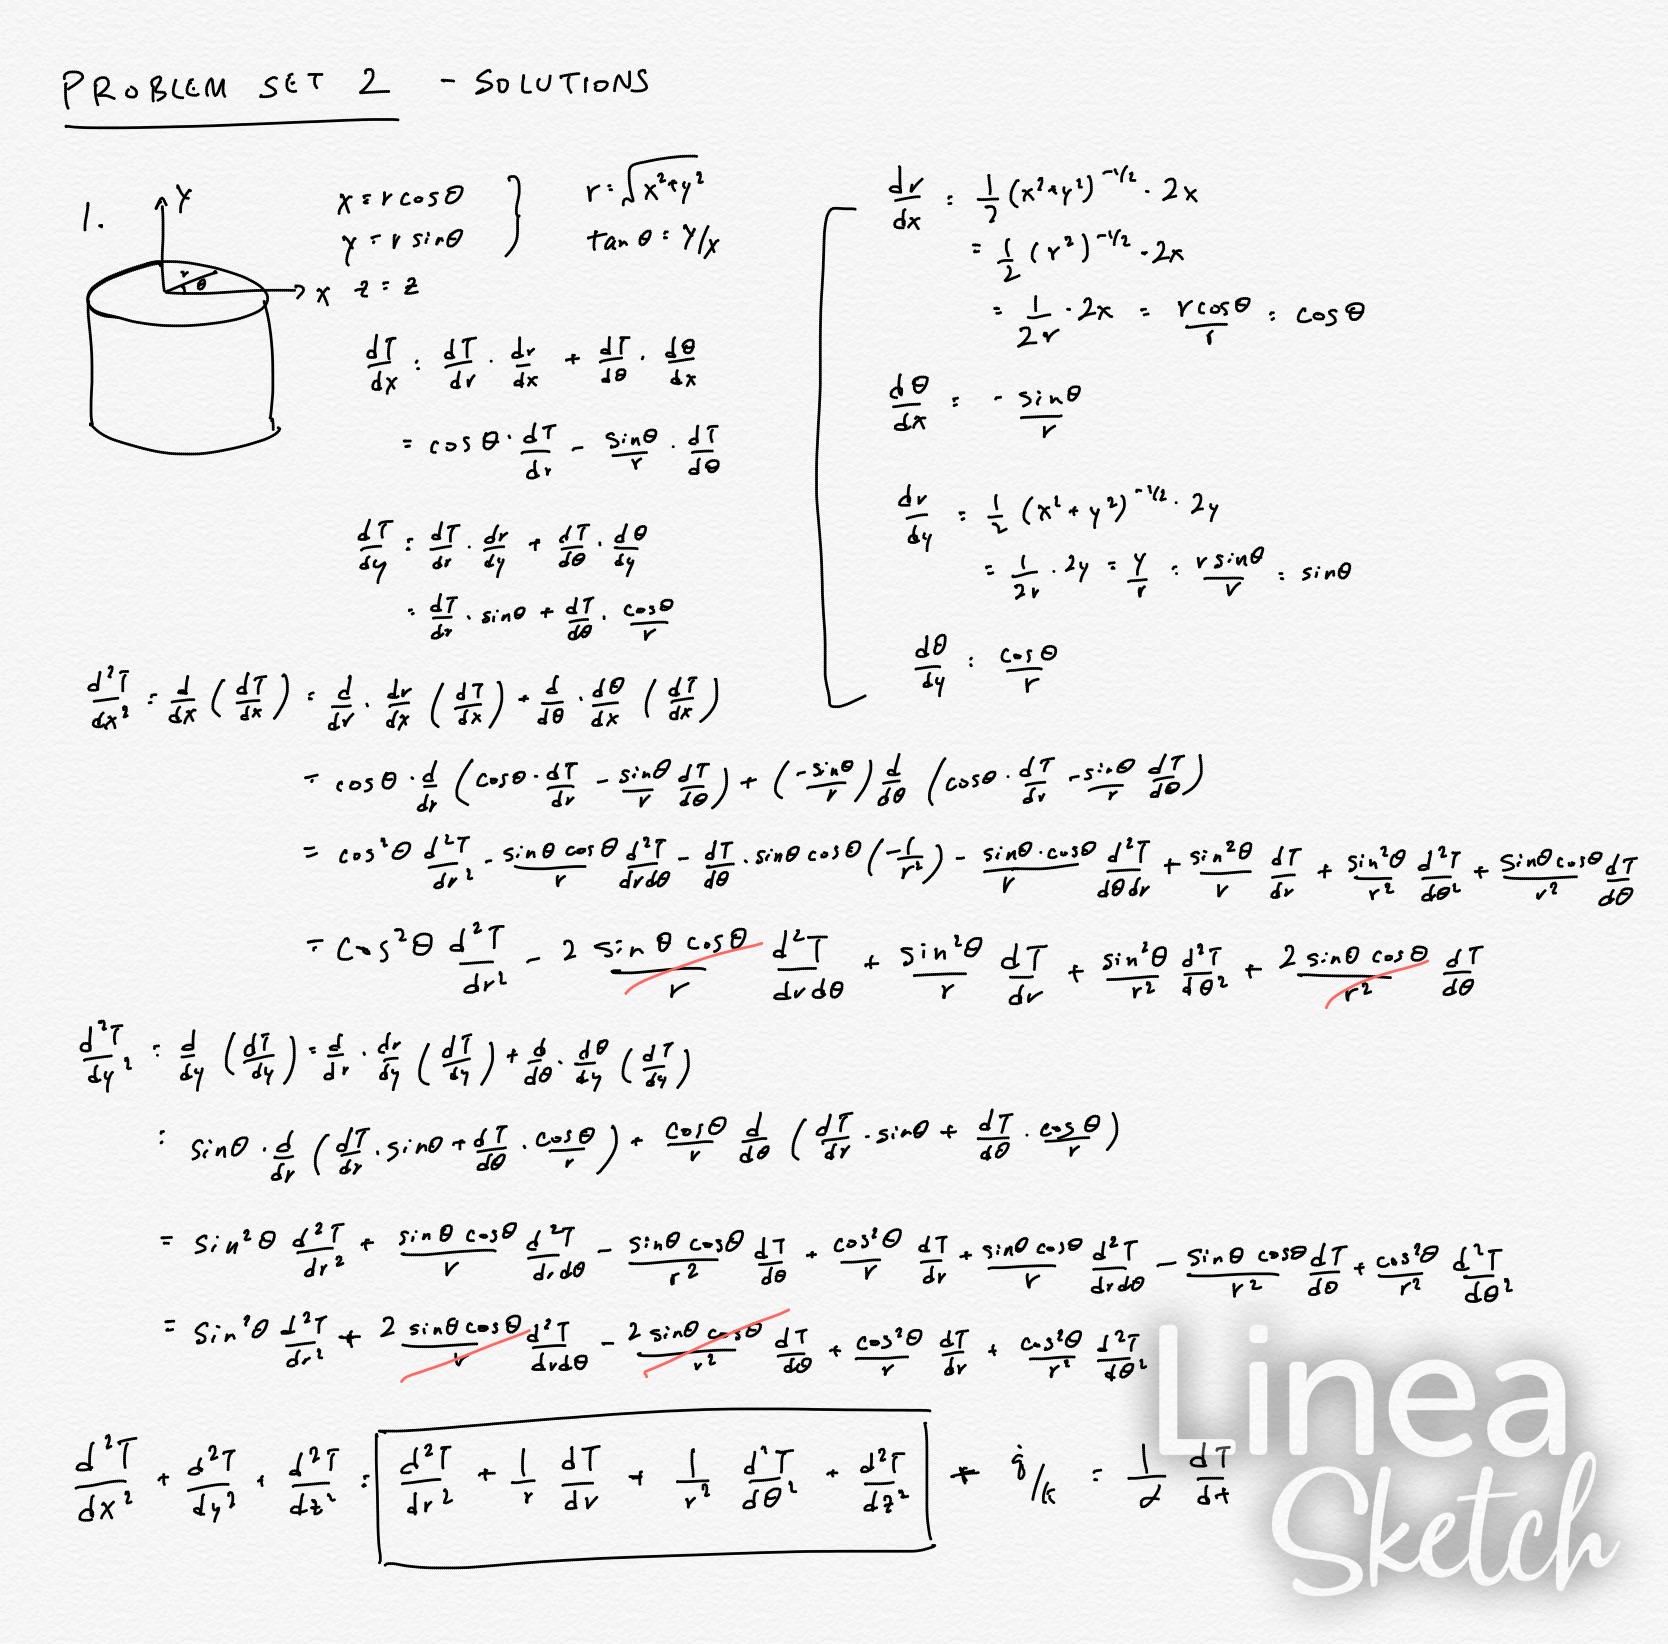 PROBLEM SET 2 - SOLUTIONS
1.
Y
r
θ
X
x = r cosθ
y = r sinθ
z = z
r = √(x²+y²)
tan θ = y/x
dT/dx = dT/dr · dr/dx + dT/dθ · dθ/dx
= cosθ · dT/dr - sinθ/r · dT/dθ
dT/dy = dT/dr · dr/dy + dT/dθ · dθ/dy
= dT/dr · sinθ + dT/dθ · cosθ/r
dr/dx = 1/2 (x²+y²)^-1/2 · 2x
= 1/2 (r²)^-1/2 · 2x
= 1/2r · 2x = rcosθ/r = cosθ
dθ/dx = - sinθ/r
dr/dy = 1/2 (x²+y²)^-1/2 · 2y
= 1/2r · 2y = y/r = rsinθ/r = sinθ
dθ/dy = cosθ/r
d²T/dx² = d/dx (dT/dx) = d/dr · dr/dx (dT/dx) + d/dθ · dθ/dx (dT/dx)
= cosθ · d/dr (cosθ · dT/dr - sinθ/r dT/dθ) + (-sinθ/r) d/dθ (cosθ · dT/dr - sinθ/r dT/dθ)
= cos²θ d²T/dr² - sinθ cosθ/r d²T/drdθ - dT/dθ · sinθ cosθ (-1/r²) - sinθ·cosθ/r d²T/dθdr + sin²θ/r dT/dr + sin²θ/r² d²T/dθ² + sinθcosθ/r² dT/dθ
= cos²θ d²T/dr² - 2 sinθ cosθ/r d²T/drdθ + sin²θ/r dT/dr + sin²θ/r² d²T/dθ² + 2 sinθ cosθ/r² dT/dθ
d²T/dy² = d/dy (dT/dy) = d/dr · dr/dy (dT/dy) + d/dθ · dθ/dy (dT/dy)
= sinθ · d/dr (dT/dr · sinθ + dT/dθ · cosθ/r) + cosθ/r d/dθ (dT/dr · sinθ + dT/dθ · cosθ/r)
= sin²θ d²T/dr² + sinθ cosθ/r d²T/drdθ - sinθ cosθ/r² dT/dθ + cos²θ/r dT/dr + sinθ cosθ/r d²T/drdθ - sinθ cosθ/r² dT/dθ + cos²θ/r² d²T/dθ²
= sin²θ d²T/dr² + 2 sinθcosθ/r d²T/drdθ - 2 sinθ cosθ/r² dT/dθ + cos²θ/r dT/dr + cos²θ/r² d²T/dθ²
d²T/dx² + d²T/dy² + d²T/dz² = d²T/dr² + 1/r dT/dr + 1/r² d²T/dθ² + d²T/dz² + q̇/k = 1/α dT/dt
Linea
Sketch